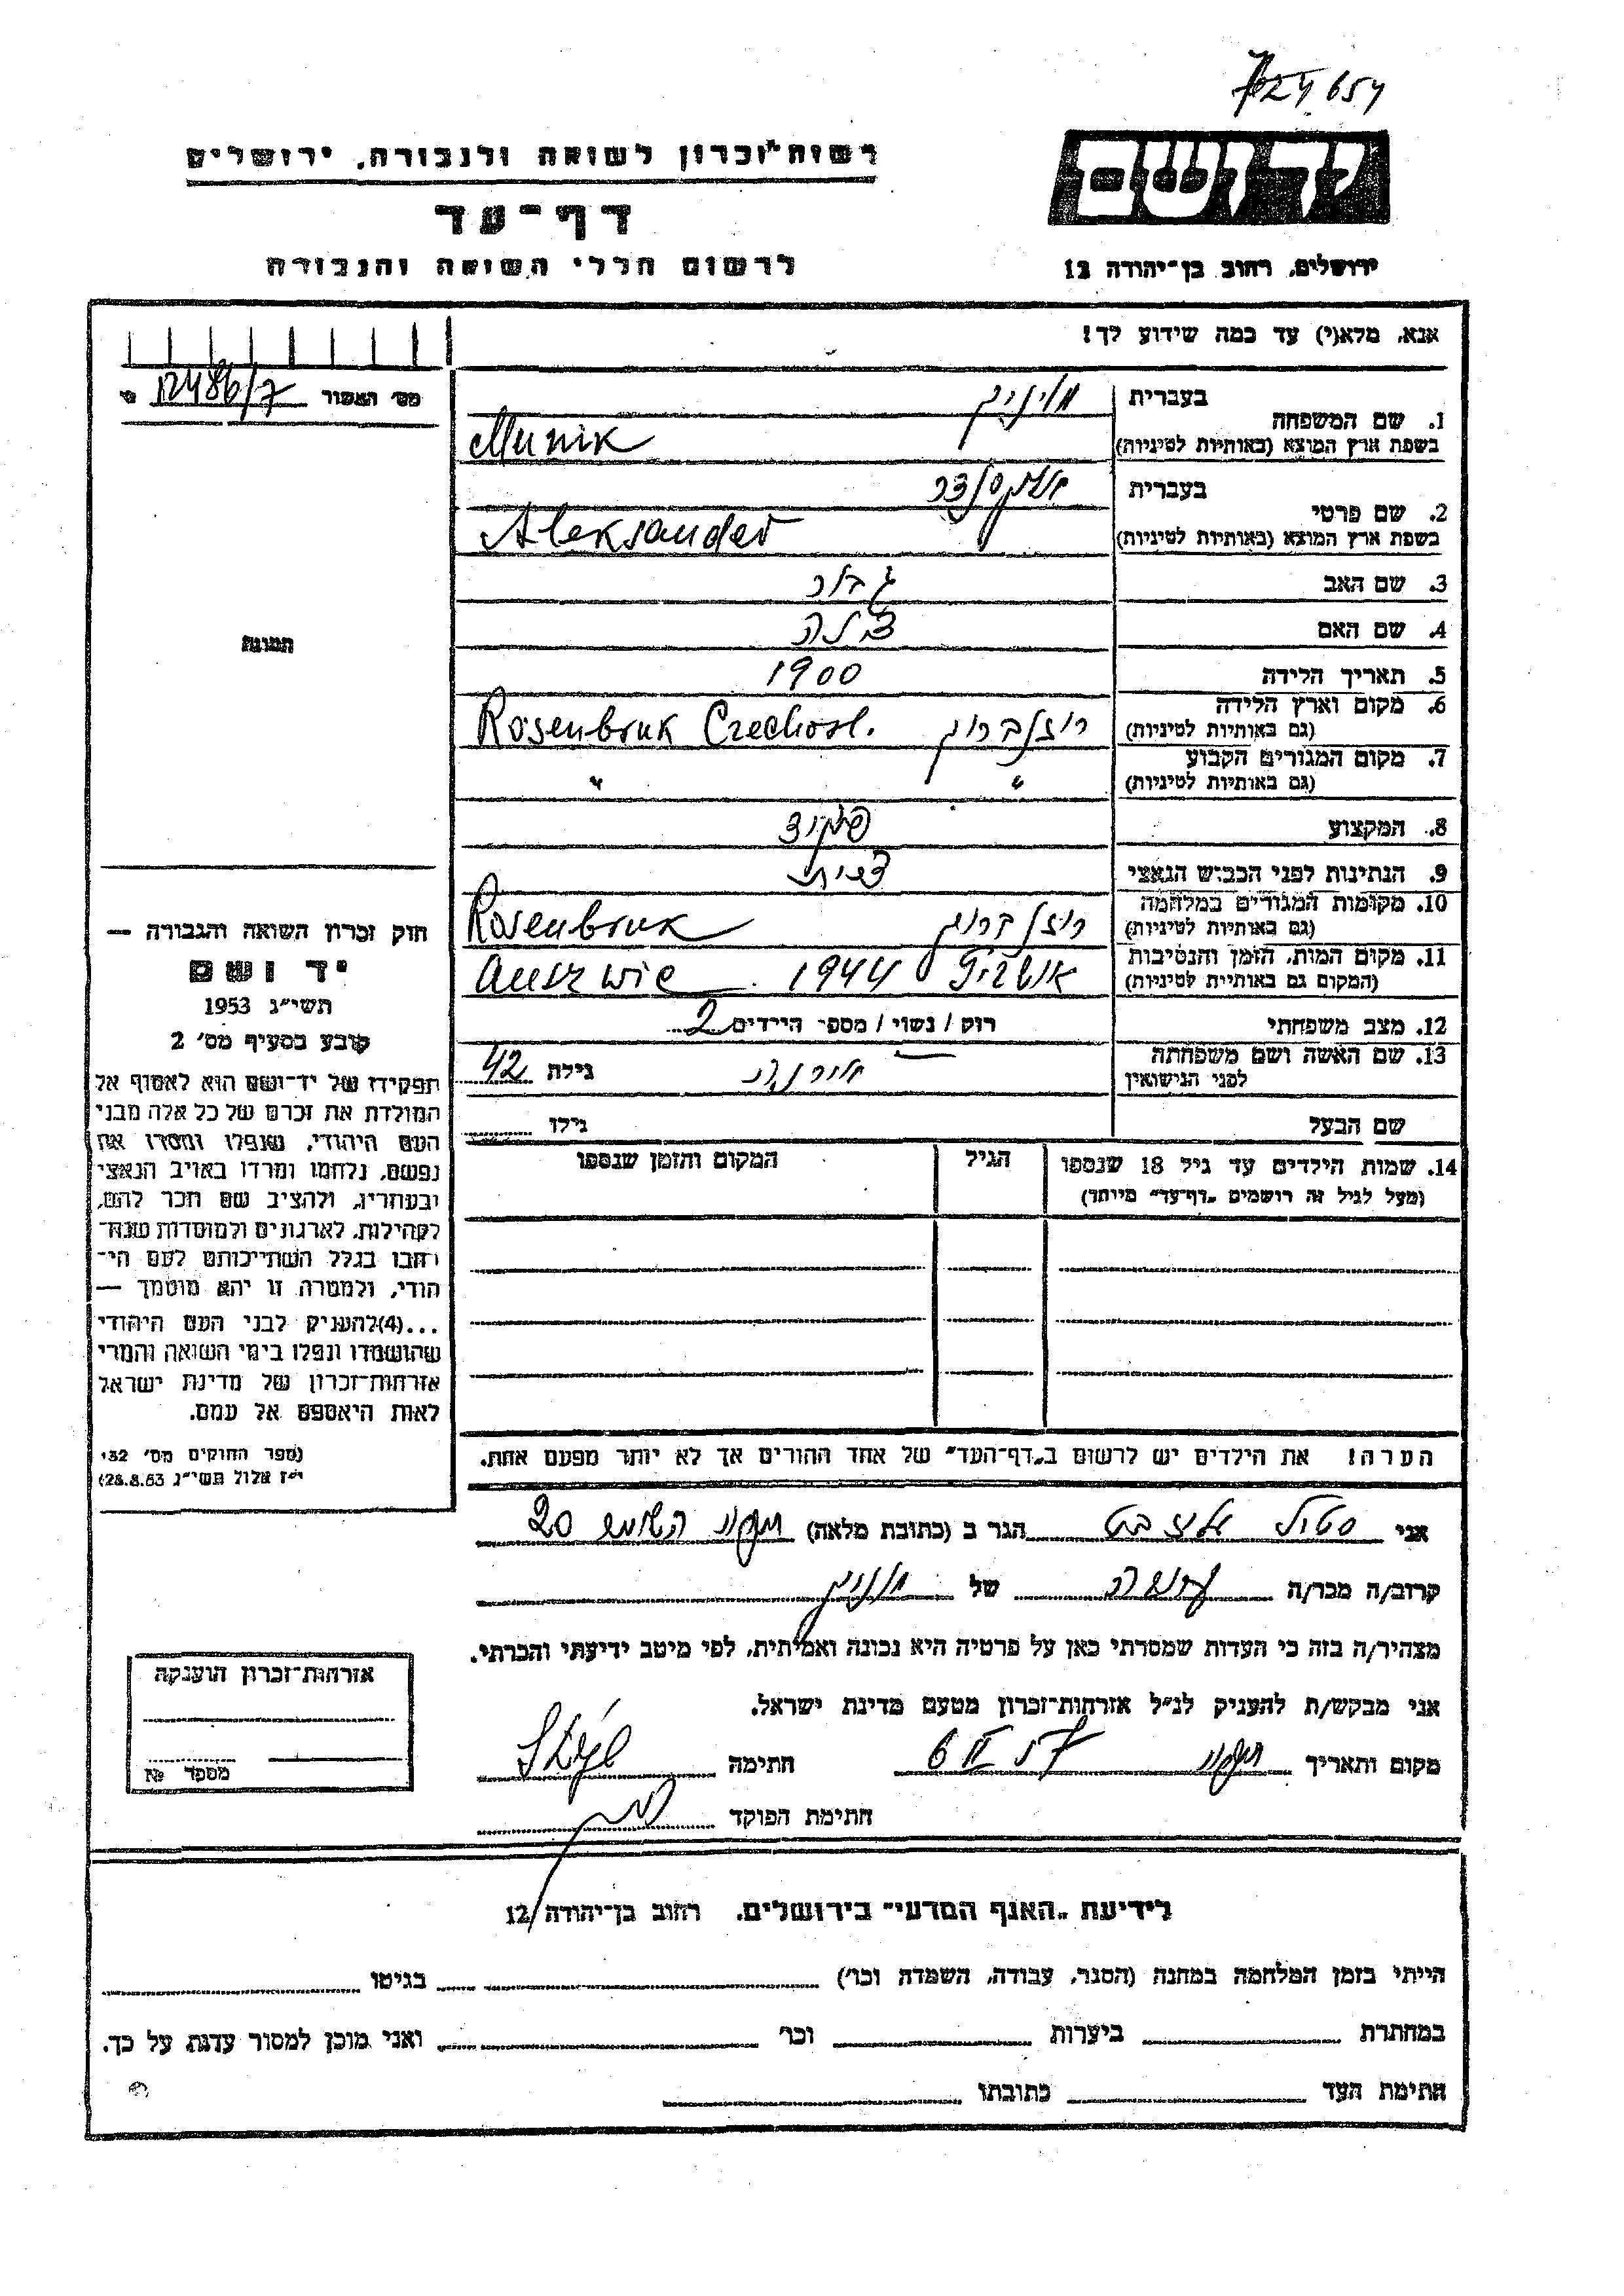 024654
רשות־זכרון לשואה ולגבורה, ירושלים
יד ושם
דף־עד
לרשום חללי השואה והגבורה
ירושלים, רחוב בן־יהודה 12
אנא, מלא(י) עד כמה שידוע לך!
מס׳ האשור 12486/7
1. שם המשפחה
בעברית מוניק
בשפת ארץ המוצא (באותיות לטיניות) Munik
2. שם פרטי
בעברית אלקסנדר
בשפת ארץ המוצא (באותיות לטיניות) Aleksander
3. שם האב
4. שם האם
5. תאריך הלידה 1900
6. מקום וארץ הלידה
(גם באותיות לטיניות) רוזנברוק Rosenbruk Czechosl.
7. מקום המגורים הקבוע
(גם באותיות לטיניות) " "
8. המקצוע פקיד
9. הנתינות לפני הכבוש הנאצי צ׳כית
10. מקומות המגורים במלחמה
(גם באותיות לטיניות) רוזנברוק Rosenbruk
11. מקום המות, הזמן והנסיבות
(המקום גם באותיות לטיניות) 1944 Auszwic
12. מצב משפחתי רוק / נשוי / מספר הילדים 2
13. שם האשה ושם משפחתה
לפני הנישואין גילה 42
שם הבעל גילו
14. שמות הילדים עד גיל 18 שנספו הגיל המקום והזמן שנספו
(מעל לגיל זה רושמים „דף־עד" מיוחד)
הערה! את הילדים יש לרשום ב„דף־העד" של אחד ההורים אך לא יותר מפעם אחת.
תמונה
חוק זכרון השואה והגבורה —
יד ושם
תשי״ג 1953
קובע בסעיף מס׳ 2
תפקידו של יד־ושם הוא לאסוף אל
המולדת את זכרם של כל אלה מבני
העם היהודי, שנפלו ומסרו את
נפשם, נלחמו ומרדו באויב הנאצי
ובעוזריו, ולהציב שם וזכר להם,
לקהילות, לארגונים ולמוסדות שנח־
רבו בגלל השתייכותם לעם הי־
הודי, ולמטרה זו יהא מוסמך —
...(4)להעניק לבני העם היהודי
שהושמדו ונפלו בימי השואה והמרי
אזרחות־זכרון של מדינת ישראל
לאות היאספם אל עמם.
(ספר החוקים מס׳ 132
י״ז אלול תשי״ג 28.8.53)
אני הגר ב (כתובת מלאה) 20
קרוב/ה מכר/ה של מוניק
מצהיר/ה בזה כי העדות שמסרתי כאן על פרטיה היא נכונה ואמיתית, לפי מיטב ידיעתי והכרתי.
אני מבקש/ת להעניק לנ״ל אזרחות־זכרון מטעם מדינת ישראל.
מקום ותאריך 6 II 57 חתימה
חתימת הפוקד
אזרחות־זכרון הוענקה
מספר №
לידיעת „האגף המדעי" בירושלים, רחוב בן־יהודה 12
הייתי בזמן המלחמה במחנה (הסגר, עבודה, השמדה וכו׳) בגיטו
במחתרת ביערות וכו׳ ואני מוכן למסור עדות על כך.
חתימת העד כתובתו